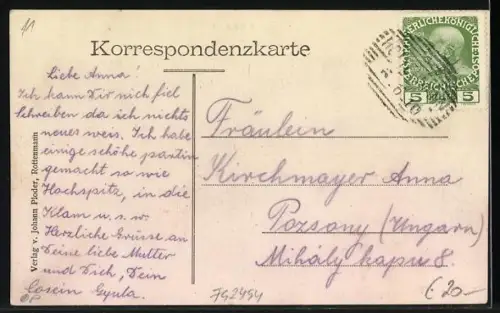 41
Korrespondenzkarte
Liebe Anna!
Ich kann Dir nich fiel
Schreiben da ich nichts
neues weis. Ich habe
einige schöhe partin
gemacht so wie
Hochspitz, in die
Klam u. s. w.
Herzliche Grüsse an
Deine liebe Mutter
und Dich, Dein
Cosein Gyula.
Verlag v. Johann Ploder, Rottenmann
5 5
Fräulein
Kirchmayer Anna
Pozsony (Ungarn)
Mihály kapu 8.
JG2454
€ 20-